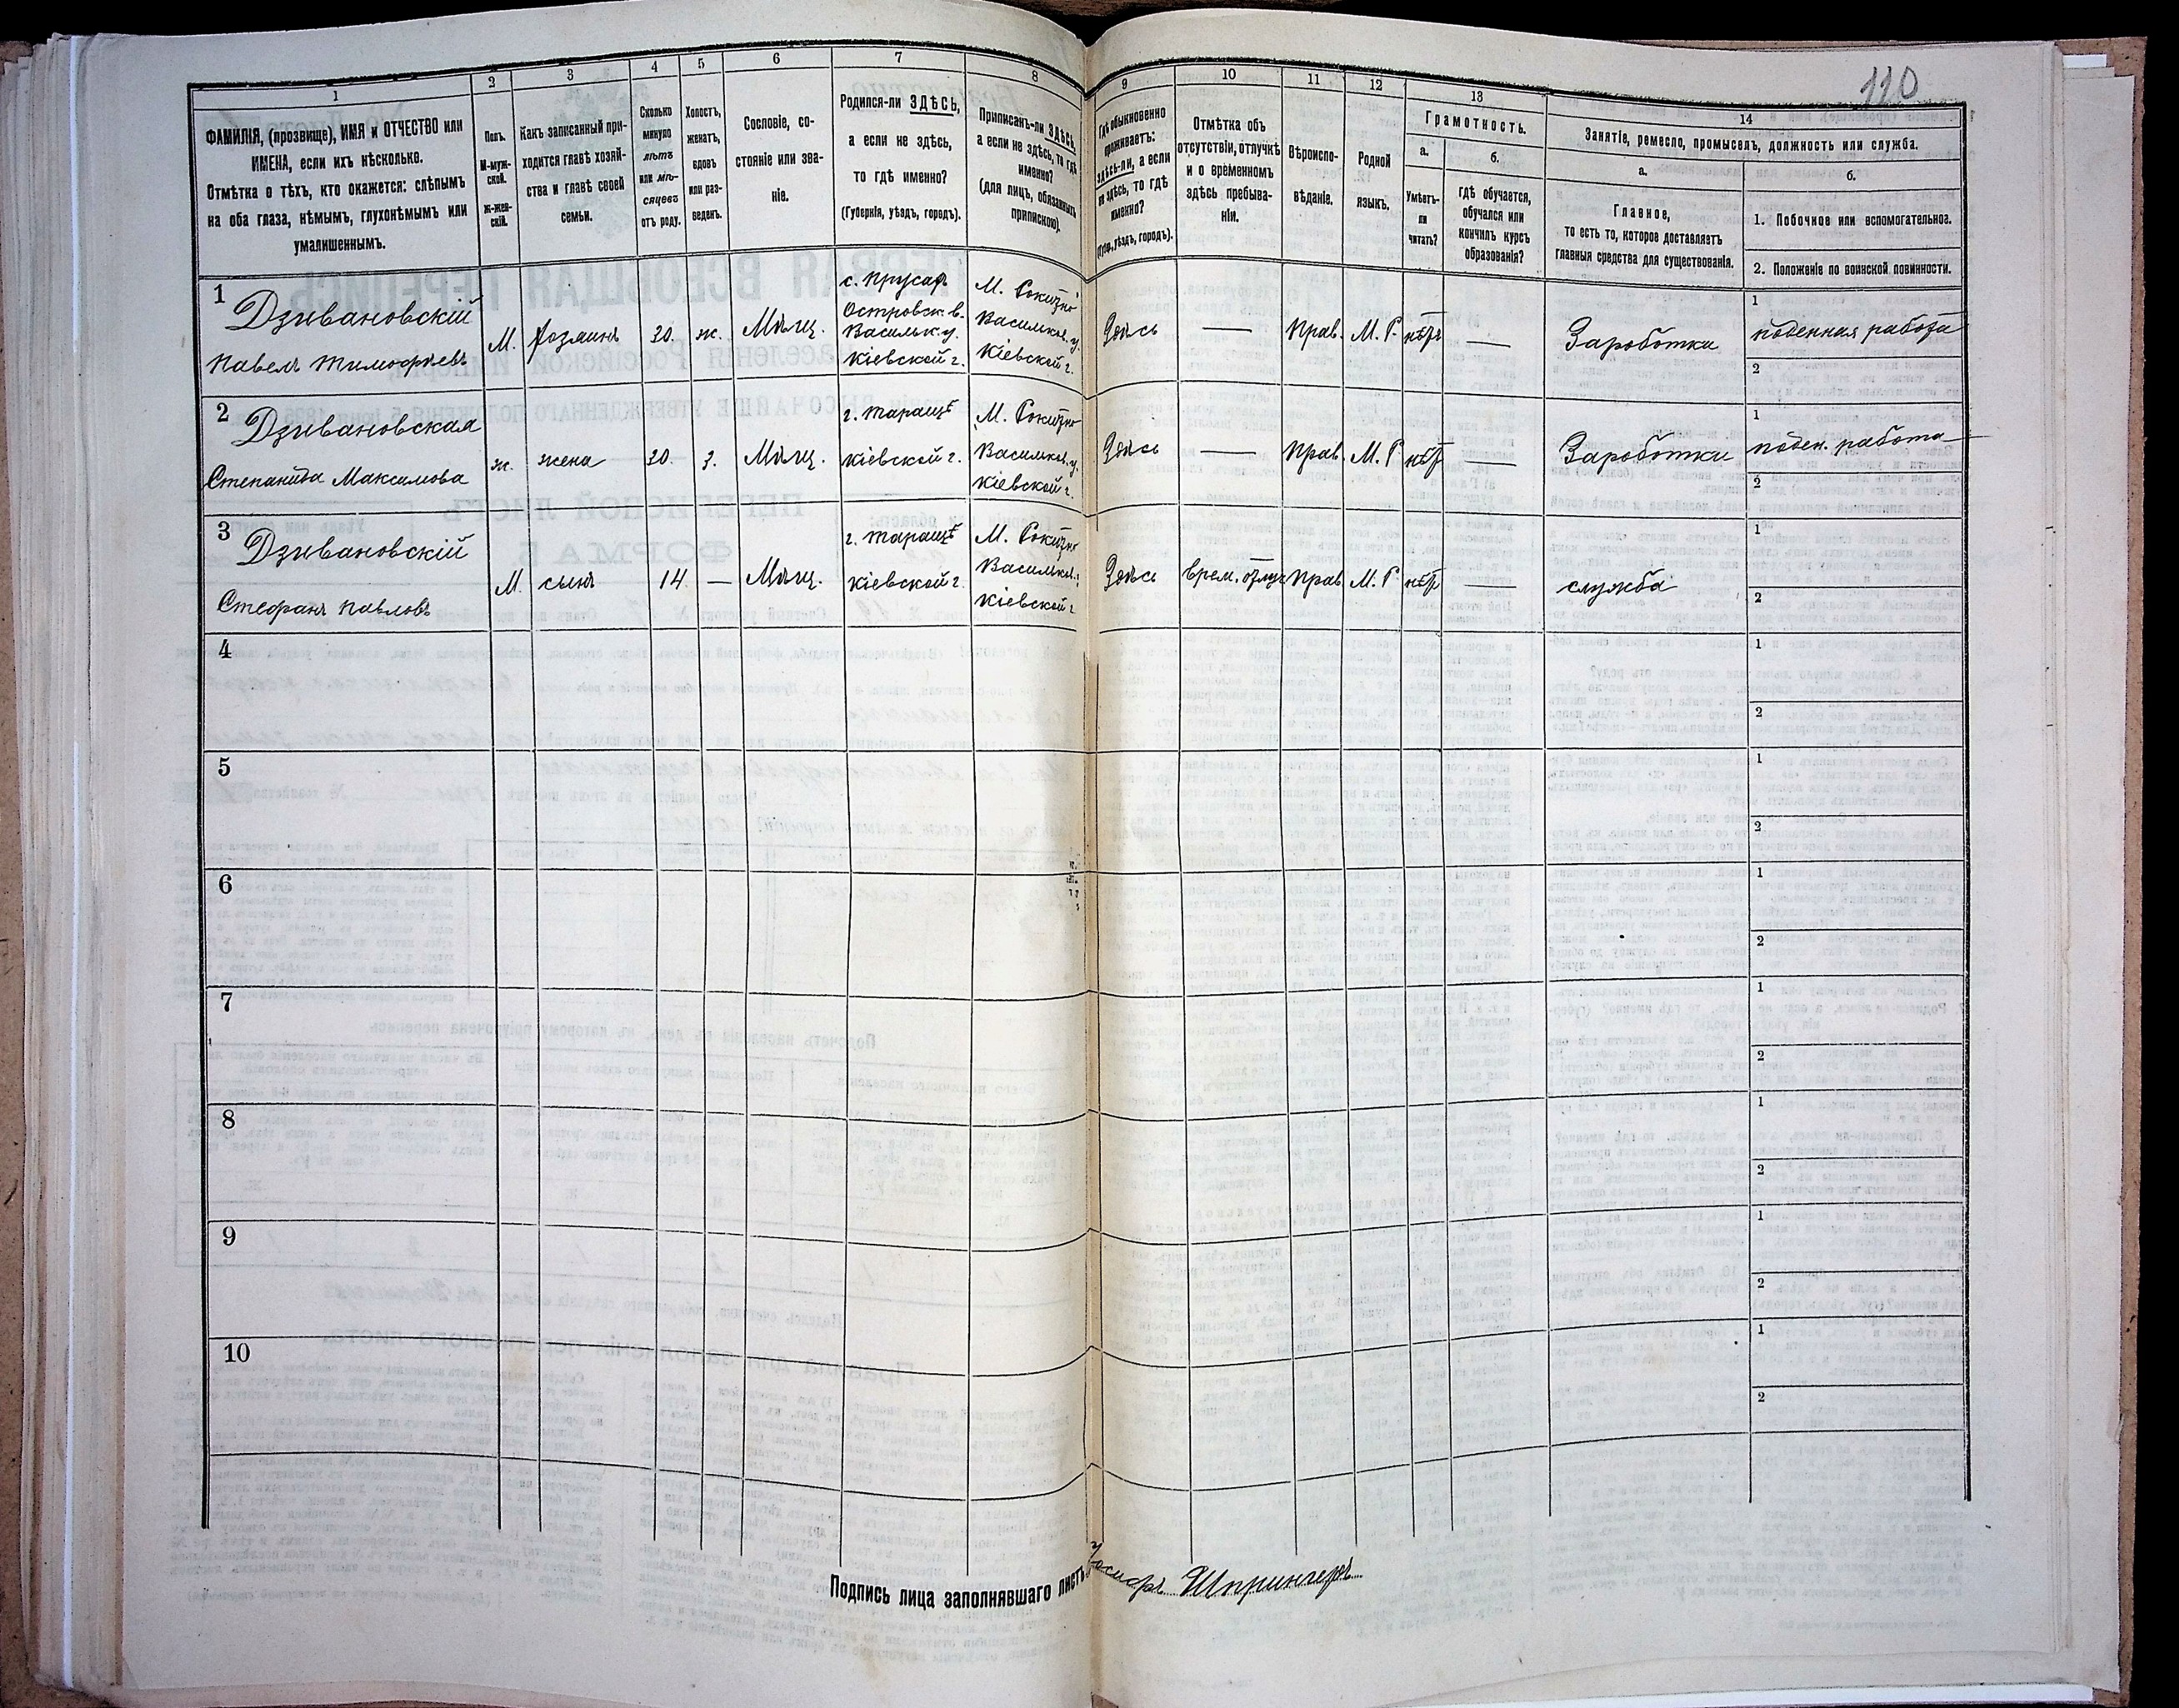 110
1
2
3
4
5
6
7
8
9
10
11
12
13
14
ФАМИЛІЯ, (прозвище), ИМЯ и ОТЧЕСТВО или
ИМЕНА, если ихъ нѣсколько.
Отмѣтка о тѣхъ, кто окажется: слѣпымъ
на оба глаза, нѣмымъ, глухонѣмымъ или
умалишеннымъ.
Полъ.
М-муж-
ской.
Ж-жен-
скій.
Какъ записанный при-
ходится главѣ хозяй-
ства и главѣ своей
семьи.
Сколько
минуло
лѣтъ
или мѣ-
сяцевъ
отъ роду.
Холостъ,
женатъ,
вдовъ
или раз-
веденъ.
Сословіе, со-
стояніе или зва-
ніе.
Родился-ли ЗДѢСЬ,
а если не здѣсь,
то гдѣ именно?
(Губернія, уѣздъ, городъ).
Приписанъ-ли ЗДѢСЬ,
а если не здѣсь, то гдѣ
именно?
(для лицъ, обязанныхъ
припискою).
Гдѣ обыкновенно
проживаетъ:
здѣсь-ли, а если
не здѣсь, то гдѣ
именно?
(Губ., уѣздъ, городъ).
Отмѣтка объ
отсутствіи, отлучкѣ
и о временномъ
здѣсь пребыва-
ніи.
Вѣроиспо-
вѣданіе.
Родной
языкъ.
Грамотность.
а.
Умѣетъ-
ли
читать?
б.
гдѣ обучается,
обучался или
кончилъ курсъ
образованія?
Занятіе, ремесло, промыселъ, должность или служба.
а.
Главное,
то есть то, которое доставляетъ
главныя средства для существованія.
б.
1. Побочное или вспомогательное.
2. Положеніе по воинской повинности.
1
Дзивановскій
Павелъ Тимофѣевъ
М.
хозяинъ
30.
ж.
Мѣщ.
Островск. в.
Васильк. у.
Кіевской г.
М. Рокитно
Васильков. у.
Кіевской г.
Здѣсь
—
Прав.
М. Р.
нѣтъ
—
Заработки
1
поденная работа
2
2
Дзивановская
Степанида Максимова
ж.
жена
30.
з.
Мѣщ.
г. Тараща
Кіевской г.
М. Рокитно
Васильков. у.
Кіевской г.
Здѣсь
—
Прав
М. Р
нѣт
—
Заработки
1
поден. работа
2
3
Дзивановскій
Стефанъ Павловъ
М.
сынъ
14
—
Мѣщ.
г. Тараща
Кіевской г.
М. Рокитно
Васильков.
Кіевской г
Здѣсь
врем. отлуч
Прав
М. Р
нѣт
—
служба
1
2
4
1
2
5
1
2
6
1
2
7
1
2
8
1
2
9
1
2
10
1
2
Подпись лица заполнявшаго листъ Іосифъ Шпрингеръ